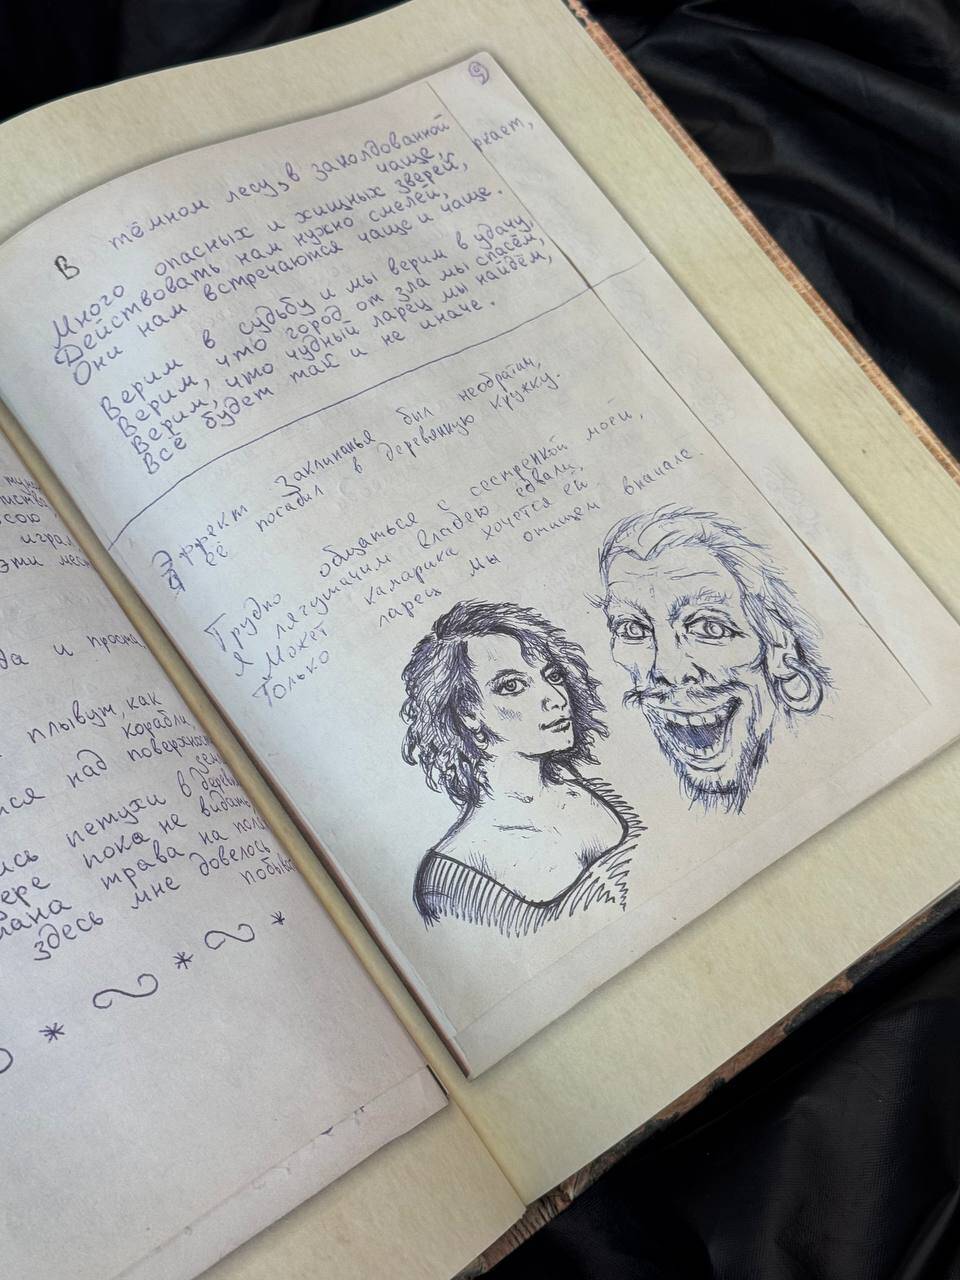 9
В тёмном лесу, в заколдованной чаще,
Много опасных и хищных зверей,
Действовать нам нужно смелей,
Они нам встречаются чаще и чаще.
ркает,
Верим в судьбу и мы верим в удачу,
Верим, что город от зла мы спасём,
Верим, что чудный ларец мы найдём,
Всё будет так и не иначе.
Эффект заклинанья был необратим,
Её посадил в деревянную кружку.
Трудно общаться с сестрёнкой моей,
Я лягушачим владею едва ли,
Может комарика хочется ей
Только ларец мы отыщем вначале.
сою
играл
эти
да и
плывут, как
корабли,
над
ись петухи в
пока не видать
трава на
здесь мне довелось